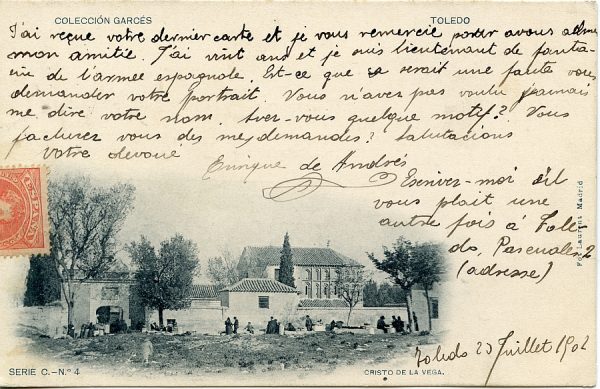 COLECCIÓN GARCÉS
TOLEDO
J'ai reçue votre dernier carte et je vous remercie porter avous
mon amitié. J'ai vint ans et je suis lieutenant de
de l'armée espagnole. Est-ce que sa serait une faute vous
demander votre portrait. Vous n'avez pas voulu jamais
me dire votre nom. Avez-vous quelque motif? Vous
facturez vous des mes demandes? Salutacions
Votre devoué
Enrique de Andrés
Escrivez-moi s'il
vous plait une
autre fois á Tole
do, Pascuales, 2
(adresse)
Fot Laurent Madrid
Toledo 23 Juillet 1902
SERIE C.-N.º 4
CRISTO DE LA VEGA.